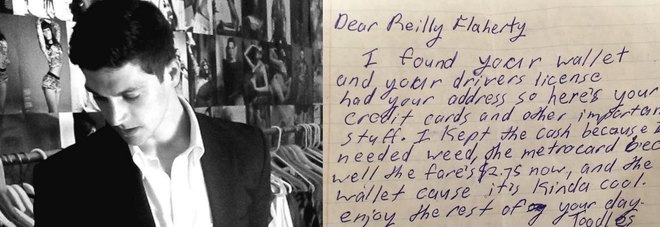 Dear Reilly Flaherty
I found your wallet
and your drivers license
had your address so here's your
credit cards and other importan
stuff. I kept the cash because i
needed weed, the metrocard bec
well the fare's $2.75 now, and the
wallet cause it's kinda cool.
enjoy the rest of your day.
Toodles